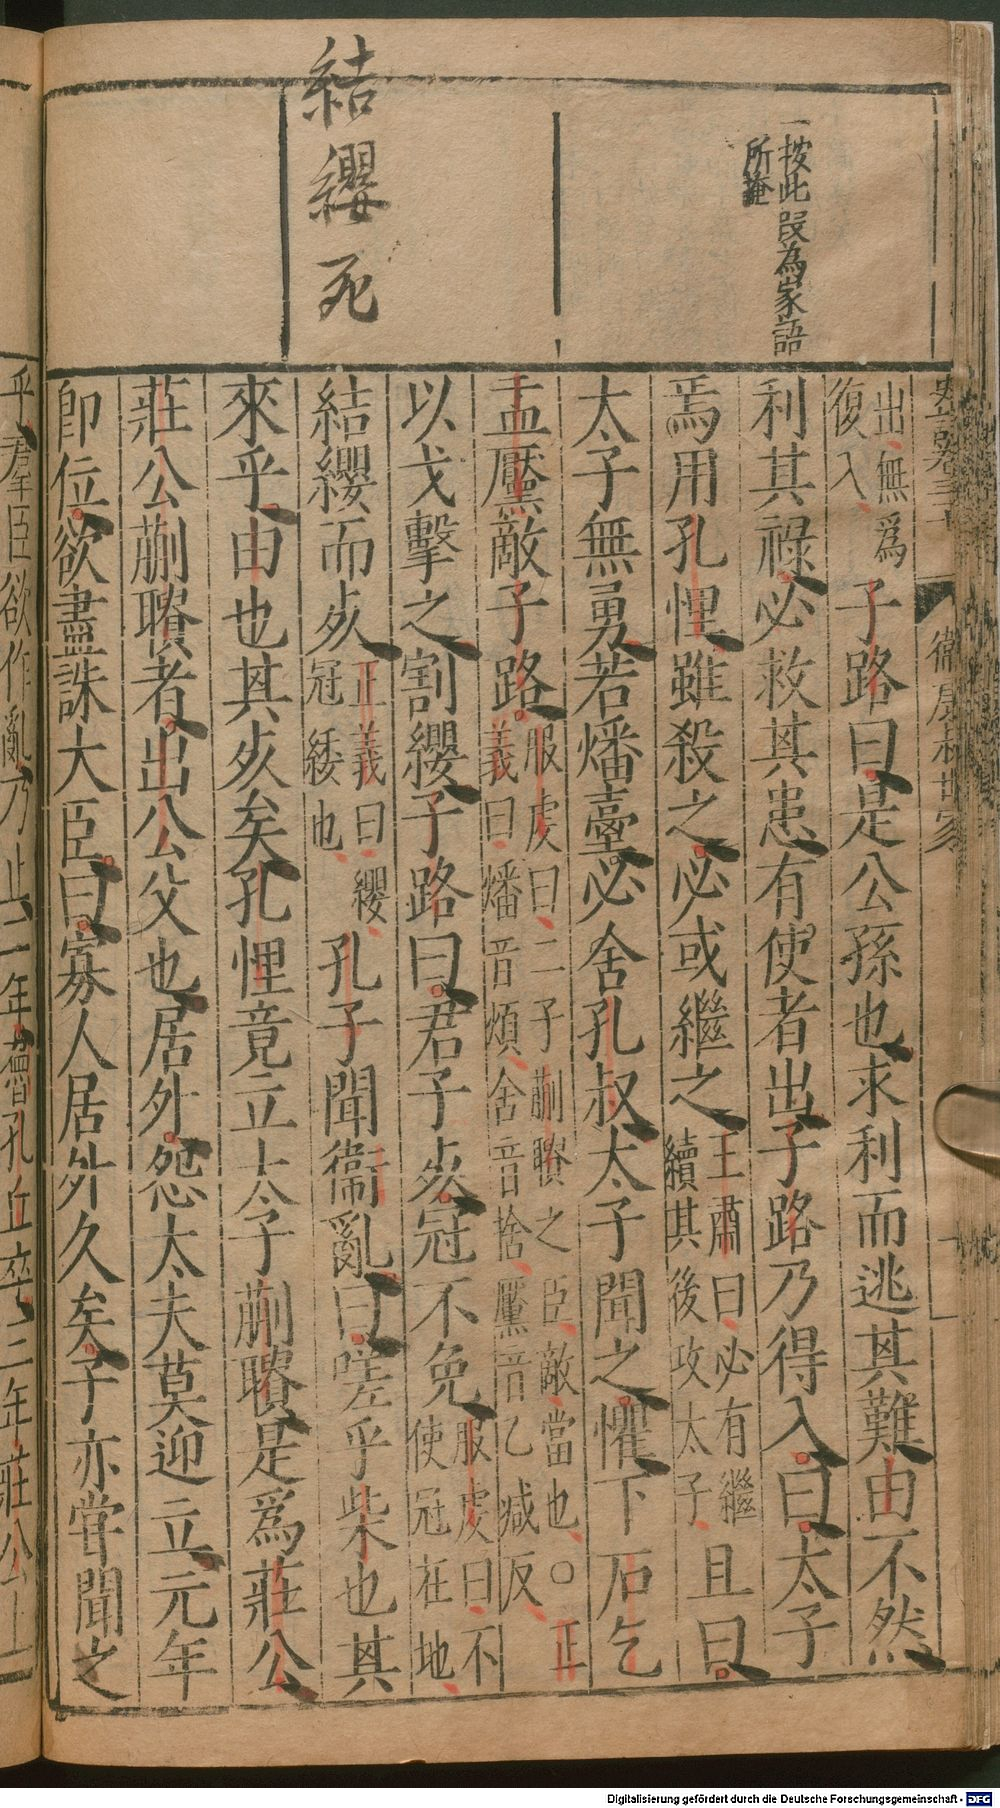 一按此段為家語
所載
結纓死
史記卷三十七
衛康叔世家
出、無爲
復入、
子路曰是公孫也求利而逃其難由不然
利其祿必救其患有使者出子路乃得入曰太子
焉用孔悝雖殺之必或繼之
王肅曰、必有繼
續其後攻太子、
且曰
太子無勇若燔臺必舍孔叔太子聞之懼下石乞
盂黶敵子路
服虔曰、二子蒯聵之臣、敵、當也、○正
義曰、燔音煩、舍音捨、黶音乙減反、
以戈擊之割纓子路曰君子死冠不免
服虔曰、不
使冠在地、
結纓而死
正義曰、纓、
冠緌也、
孔子聞衞亂曰嗟乎柴也其
來乎由也其死矣孔悝竟立太子蒯聵是爲莊公
莊公蒯聵者出公父也居外怨大夫莫迎立元年
卽位欲盡誅大臣曰寡人居外久矣子亦嘗聞之
乎羣臣欲作亂乃止二年魯孔丘卒三年莊公上
Digitalisierung gefördert durch die Deutsche Forschungsgemeinschaft - DFG